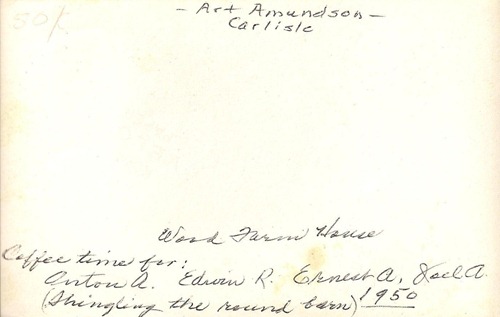 - Art Amundson -
Carlisle
Wood Farm House
Coffee time for:
Anton A. Edwin R. Ernest A, Joel A.
(Shingling the round barn) 1950